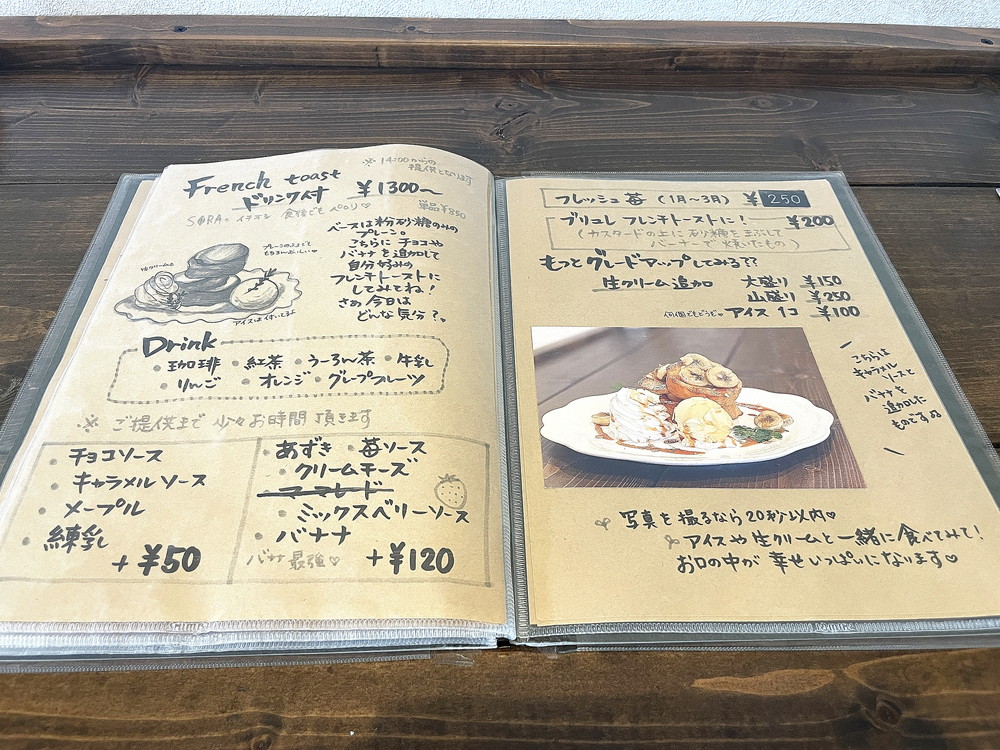 ※14:00からの
提供となります
French toast
ドリンク付 ¥1300〜
単品¥850
SORAの イチオシ 食後でも ペロリ♡
ベースは粉砂糖のみの
プレーン。
こちらに チョコや
バナナ を追加して
自分好みの
フレンチトーストに
してみてね!
さぁ 今日は
どんな気分?。
プレーンのままでも
もちろんおいしい♡
生クリームと
アイスは付いてるよ
Drink
・珈琲 ・紅茶 ・うーろん茶 ・牛乳
・りんご ・オレンジ ・グレープフルーツ
※ご提供まで 少々お時間 頂きます
・チョコソース
・キャラメルソース
・メープル
・練乳
+¥50
・あずき ・苺ソース
・クリームチーズ
・ミックスベリーソース
・バナナ
バナナ最強♡ +¥120
フレッシュ苺(1月〜3月) ¥250
ブリュレ フレンチトーストに! ¥200
(カスタードの上に 砂糖をまぶして
バーナーで 焼いたもの)
もっとグレードアップしてみる??
生クリーム追加 大盛り ¥150
山盛り ¥250
何個でもどうぞ♡ アイス 1コ ¥100
こちらは
キャラメル
ソースと
バナナを
追加した
ものですよ
写真を撮るなら20秒以内♡
アイスや生クリームと一緒に食べてみて!
お口の中が 幸せいっぱいになります♡